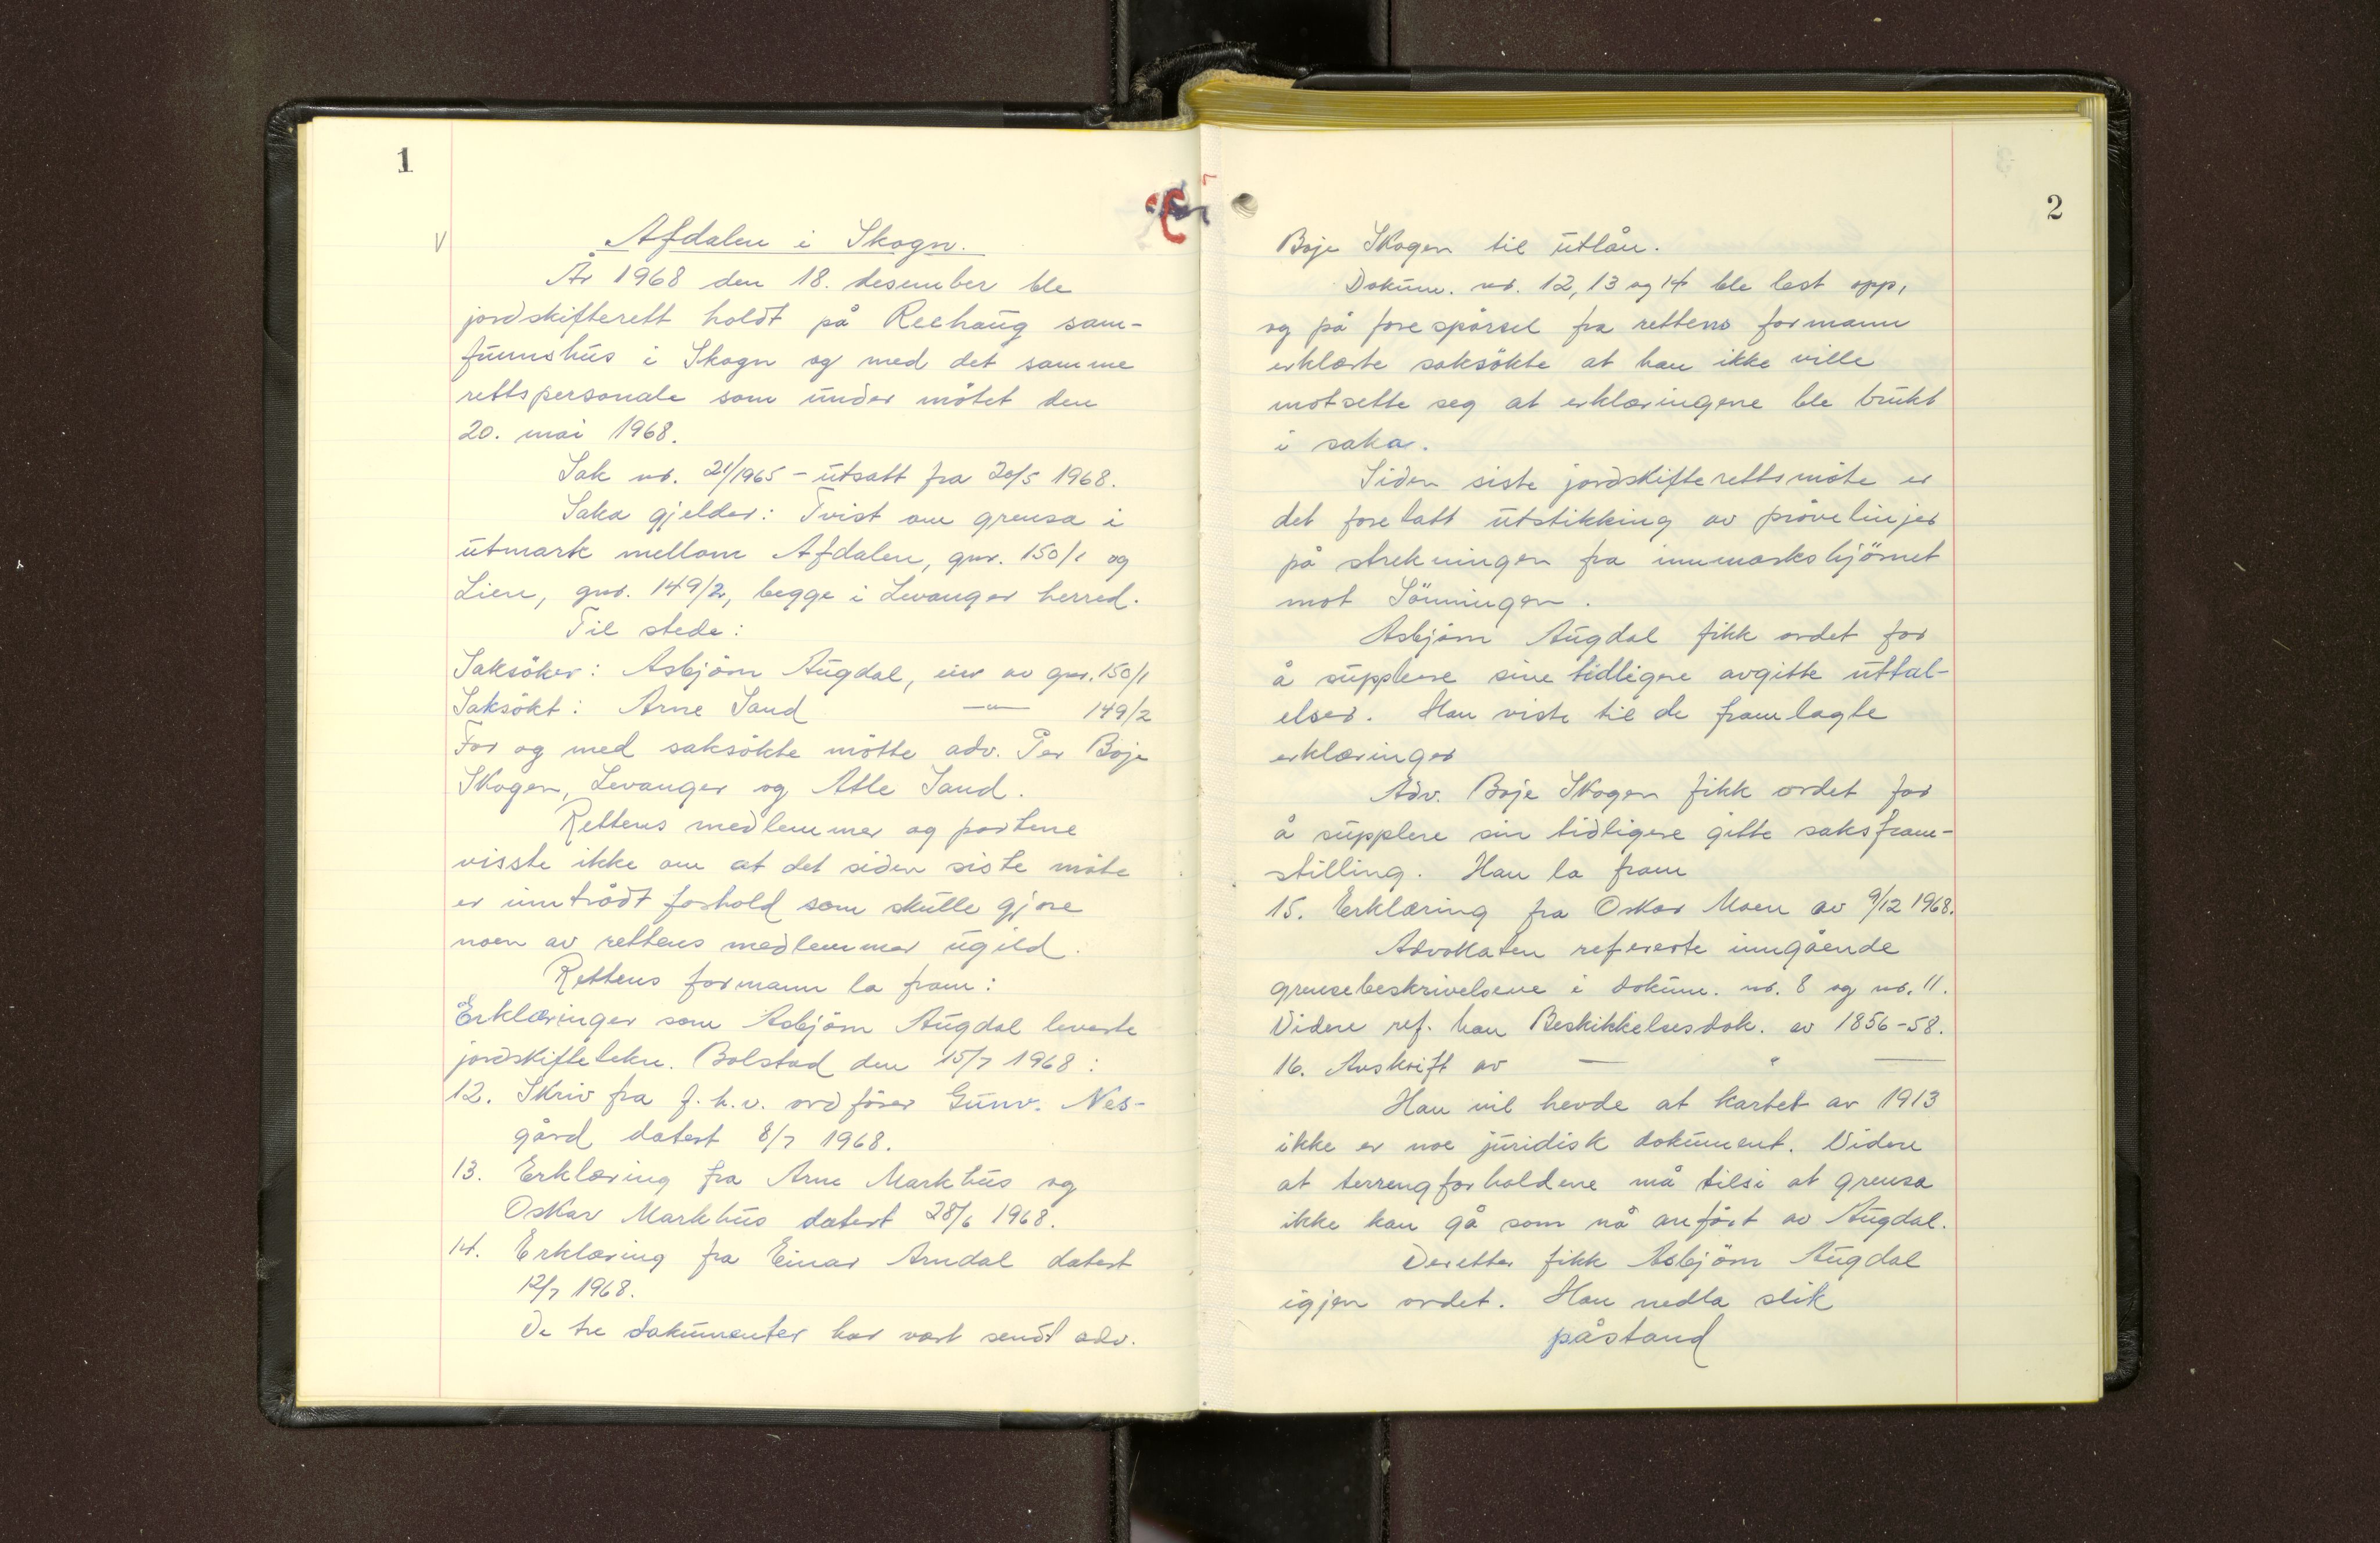 1
V
Afdalen i Skogn.
År 1968 den 18. desember ble
jordskifterett holdt på Reehaug sam-
funnshus i Skogn og med det samme
rettspersonale som under mötet den
20. mai 1968.
Sak nr. 21/1965 - utsatt fra 20/5 1968.
Saka gjelder: Tvist om grensa i
utmark mellom Afdalen, gnr. 150/1 og
Lien, gnr. 149/2, begge i Levanger herred.
Til stede:
Saksöker: Asbjörn Augdal, eier av gnr. 150/1
Saksökt: Arne Sand —"— 149/2
For og med saksökte mötte adv. Per Boje
Skogen, Levanger og Atle Sand.
Rettens medlemmer og partene
visste ikke om at det siden siste möte
er inntrådt forhold som skulle gjöre
noen av rettens medlemmer ugild.
Rettens formann la fram:
Erklæringer som Asbjörn Augdal leverte
jordskiftetekn. Bolstad den 15/7 1968:
12. Skriv fra f.h.v. ordförer Gunv. Nes-
gård datert 8/7 1968.
13. Erklæring fra Arne Markhus og
Oskar Markhus datert 28/6 1968.
14. Erklæring fra Einar Arndal datert
12/7 1968.
De tre dokumenter har vært sendt adv.
2
Boje Skogen til utlån.
Dokum. nr. 12, 13 og 14 ble lest opp,
og på forespörsel fra rettens formann
erklærte saksökte at han ikke ville
motsette seg at erklæringene ble brukt
i saka.
Siden siste jordskifterettsmöte er
det foretatt utstikking av prövelinjer
på strekningen fra innmarkshjörnet
mot Sönningen.
Asbjörn Augdal fikk ordet for
å supplere sine tidligere avgitte uttal-
elser. Han viste til de framlagte
erklæringer
Adv. Boje Skogen fikk ordet for
å supplere sin tidligere gitte saksfram-
stilling. Han la fram
15. Erklæring fra Oskar Moen av 9/12 1968.
Advokaten refererte inngående
grensebeskrivelsene i dokum. nr. 8 og nr. 11.
Videre ref. han Beskikkelsesdok. av 1856-58.
16. Avskrift av — " —
Han vil hevde at kartet av 1913
ikke er noe juridisk dokument. Videre
at terrengforholdene må tilsi at grensa
ikke kan gå som nå anfört av Augdal.
Deretter fikk Asbjörn Augdal
igjen ordet. Han nedla slik
påstand